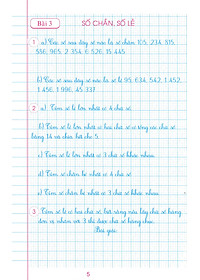 Bài 3
SỐ CHẴN, SỐ LẺ
1 a) Các số sau đây số nào là số chẵn: 105, 234, 515,
556, 965, 2 354, 6 526, 15 445
b) Các số sau đây số nào là số lẻ: 95, 634, 542, 1 452,
1 456, 1 996, 45 337
2 a) Tìm số lẻ lớn nhất có 4 chữ số.
b) Tìm số lớn nhất có hai chữ số có tổng các chữ số
bằng 14 và chia hết cho 5.
c) Tìm số lẻ lớn nhất có 3 chữ số khác nhau.
d) Tìm số chẵn bé nhất có 4 chữ số.
e) Tìm số chẵn bé nhất có 3 chữ số khác nhau.
3 Tìm số lẻ có hai chữ số, biết rằng nếu lấy chữ số hàng
đơn vị nhân với 3 thì được chữ số hàng chục.
Bài giải:
5